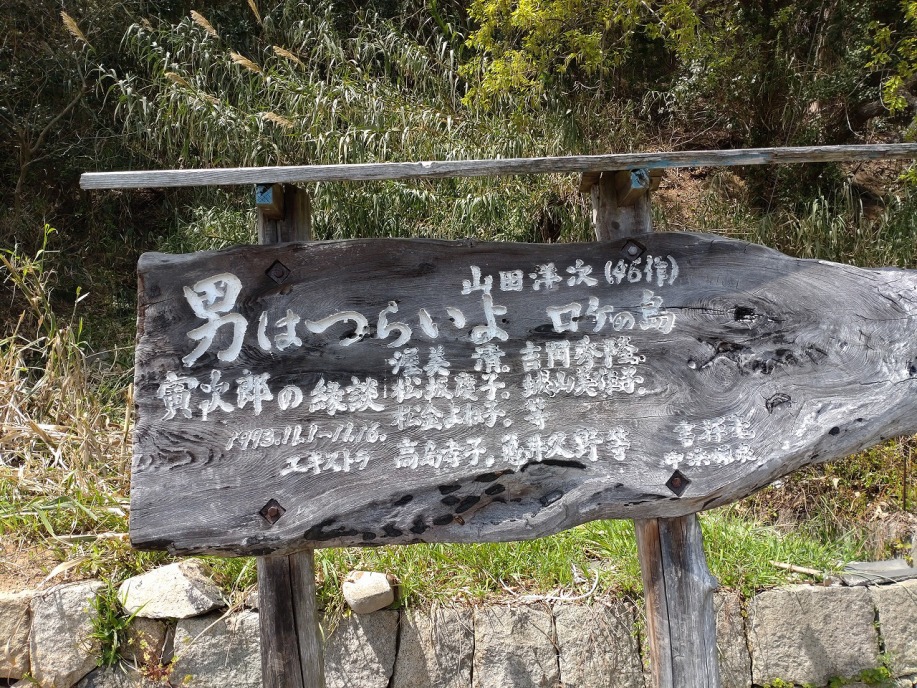 山田洋次(46作)
男はつらいよ ロケの島
渥美 清. 吉岡秀隆.
寅次郎の縁談 松坂慶子. 城山美佳子.
松金よね子. 等
1993.11.1〜11.16.
エキストラ 高島幸子. 等